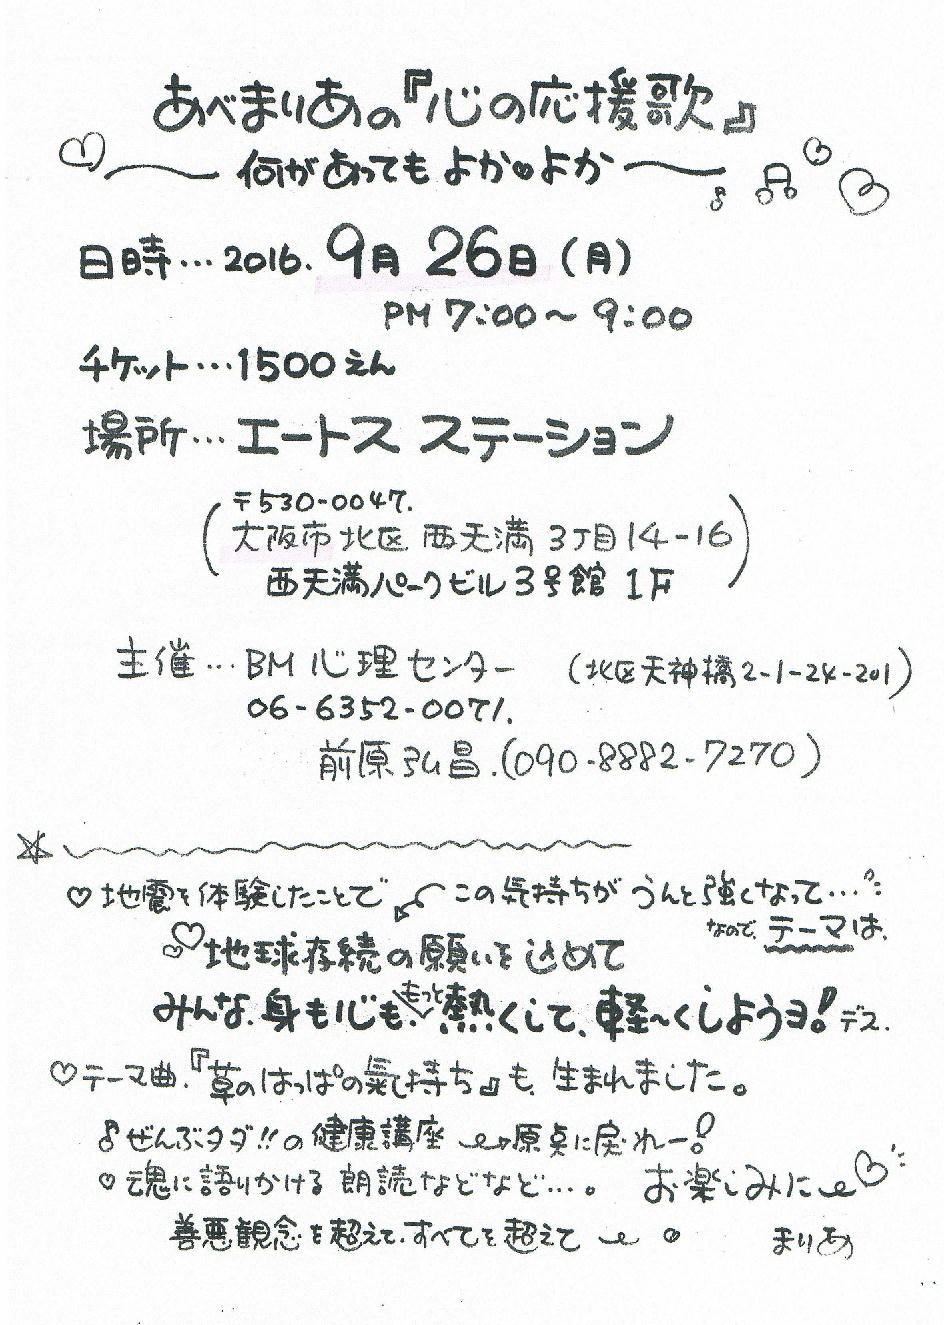 あべまりあの『心の応援歌』
何があっても よか♥よか
日時…2016. 9月 26日(月)
PM 7:00〜9:00
チケット…1500えん
場所…エートス ステーション
(〒530-0047.
大阪市北区 西天満 3丁目14-16
西天満パークビル 3号館 1F)
主催…BM心理センター (北区天神橋2-1-24-201)
06-6352-0071.
前原弘昌.(090-8882-7270)
♡地震を体験したことで この気持ちが うんと強くなって…
なので、テーマは、
地球存続の願いを込めて
みんな、身も心も、もっと熱くして、軽〜くしようヨ!デス.
♡テーマ曲、『草のはっぱの氣持ち』も、生まれました。
♪ぜんぶタダ!!の健康講座 原点に戻れー!
♡魂に語りかける 朗読などなど…。 お楽しみに
善悪観念を超えて、すべてを超えて まりあ